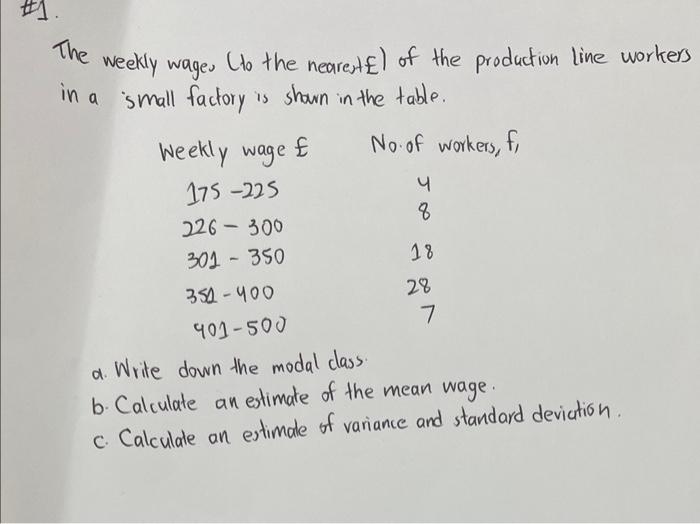 #1.
The weekly wages (to the nearest £) of the production line workers
in a small factory is shown in the table.
Weekly wage £ No. of workers, f,
175 - 225 4
226 - 300 8
301 - 350 18
351 - 400 28
401 - 500 7
a. Write down the modal class.
b. Calculate an estimate of the mean wage.
c. Calculate an estimate of variance and standard deviation.